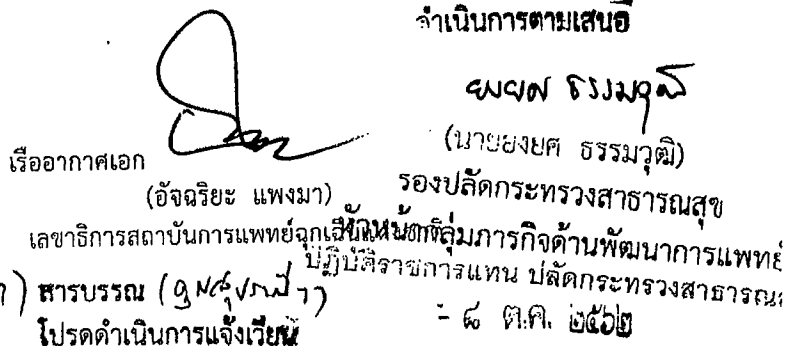 ดำเนินการตามเสนอ
ยงยศ ธรรมวุฒิ
(นายยงยศ ธรรมวุฒิ)
รองปลัดกระทรวงสาธารณสุข
หัวหน้ากลุ่มภารกิจด้านพัฒนาการแพทย์
ปฏิบัติราชการแทน ปลัดกระทรวงสาธารณ
- ๘ ต.ค. ๒๕๖๒
เรืออากาศเอก
(อัจฉริยะ แพงมา)
เลขาธิการสถาบันการแพทย์ฉุกเฉินแห่งชาติ
สารบรรณ
โปรดดำเนินการแจ้งเวียน